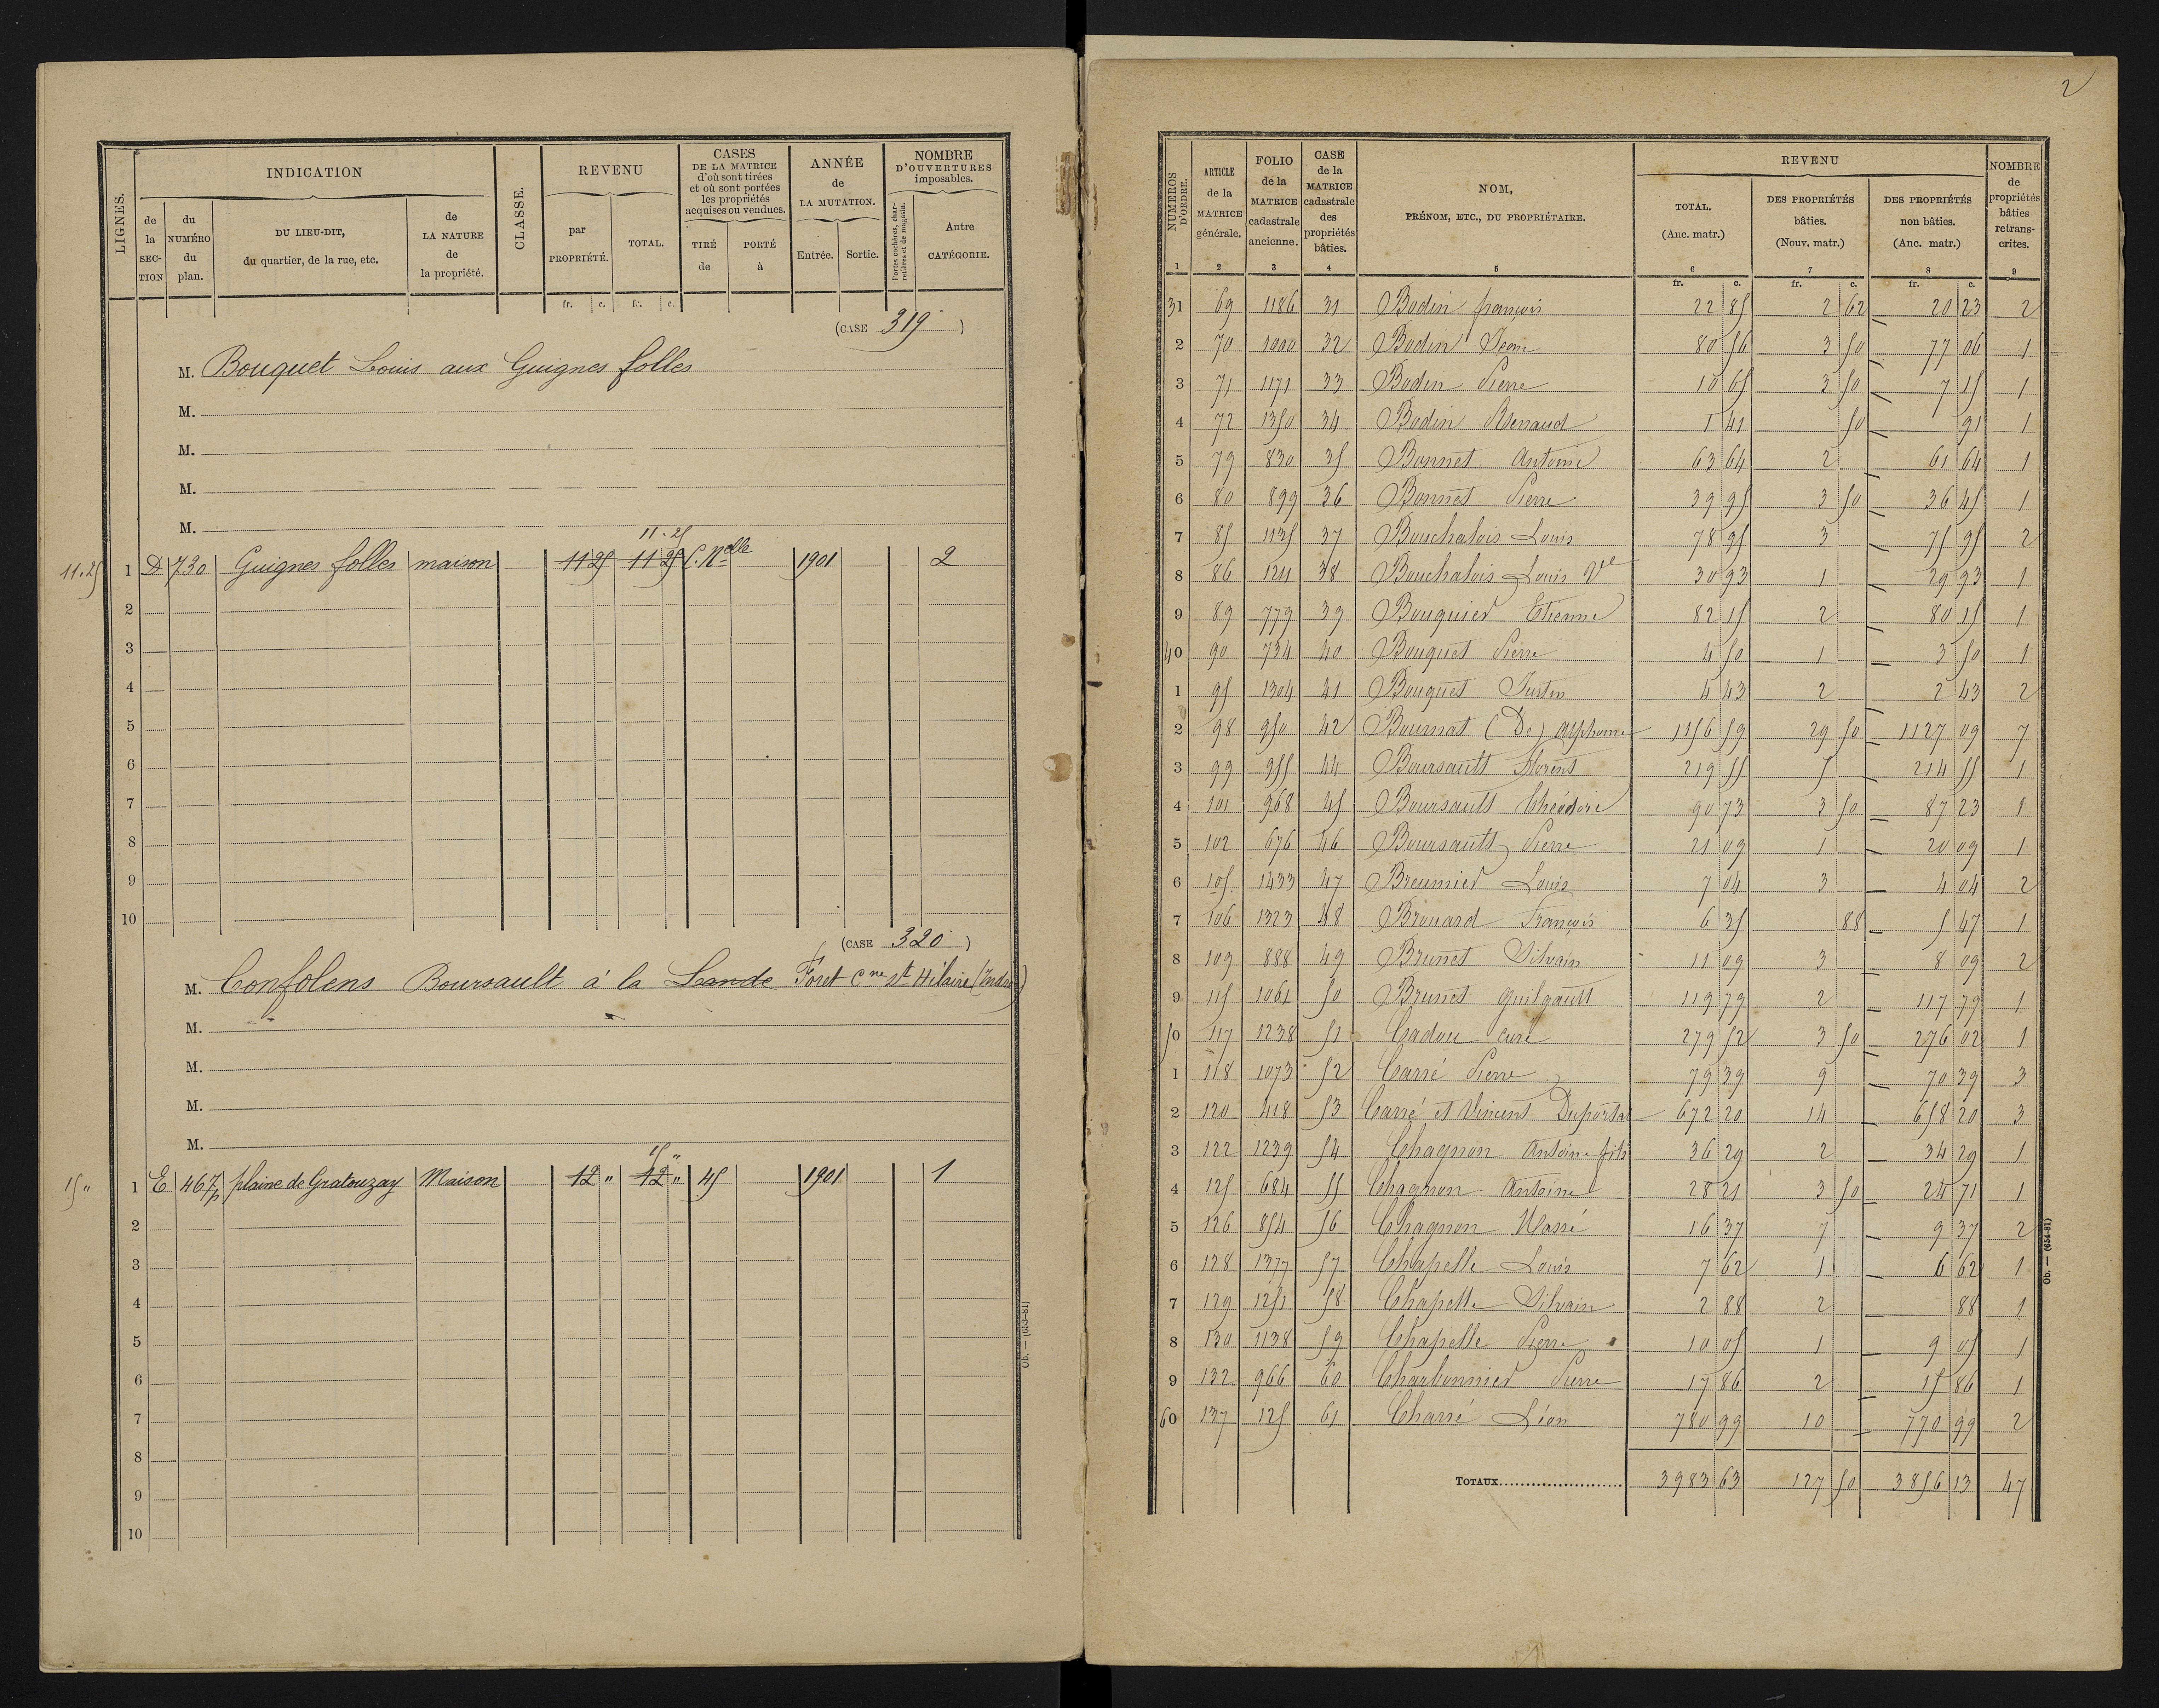 LIGNES.
INDICATION
de la SECTION
du NUMÉRO du plan.
DU LIEU-DIT, du quartier, de la rue, etc.
de LA NATURE de la propriété.
CLASSE.
REVENU
par PROPRIÉTÉ.
TOTAL.
CASES DE LA MATRICE d'où sont tirées et où sont portées les propriétés acquises ou vendues.
TIRÉ de
PORTÉ à
ANNÉE de LA MUTATION.
Entrée.
Sortie.
NOMBRE D'OUVERTURES imposables.
Portes cochères, charretières et de magasin.
Autre CATÉGORIE.
fr. c. fr. c.
(CASE 319)
M. Bouquet Louis aux Guignes folles
M.
M.
M.
M.
11.25
11.25 1 D 730 Guignes folles maison 11 25 11 25 C. Nelle 1901 2
2
3
4
5
6
7
8
9
10
(CASE 320)
M. Confolens Boursault à la Lande Foret Cne St Hilaire (Indre)
M.
M.
M.
M.
15 "
15 " 1 E 467p plaine de Gratouzay Maison 12 " 12 " 45 1901 1
2
3
4
5
6
7
8
9
10
Ob. — (653-81)
2
NUMÉROS D'ORDRE.
ARTICLE de la MATRICE générale.
FOLIO de la MATRICE cadastrale ancienne.
CASE de la MATRICE cadastrale des propriétés bâties.
NOM, PRÉNOM, ETC., DU PROPRIÉTAIRE.
REVENU
TOTAL. (Anc. matr.)
DES PROPRIÉTÉS bâties. (Nouv. matr.)
DES PROPRIÉTÉS non bâties. (Anc. matr.)
NOMBRE de propriétés bâties retranscrites.
1 2 3 4 5 6 7 8 9
fr. c. fr. c. fr. c.
31 69 1186 31 Bodin françois 22 85 2 62 20 23 2
2 70 1000 32 Bodin Jean 80 56 3 50 77 06 1
3 71 1171 33 Bodin Pierre 10 65 3 50 7 15 1
4 72 1350 34 Bodin Renaud 1 41 50 91 1
5 79 830 35 Bonnet Antoine 63 64 2 61 64 1
6 80 899 36 Bonnet Pierre 39 95 3 50 36 45 1
7 85 1135 37 Bouchalois Louis 78 95 3 75 95 2
8 86 1211 38 Bouchalois Louis Ve 30 93 1 29 93 1
9 89 779 39 Bouquier Etienne 82 15 2 80 15 1
40 90 734 40 Bouquet Pierre 4 50 1 3 50 1
1 95 1304 41 Bouquet Justin 4 43 2 2 43 2
2 98 950 42 Bournat (De) Alphonse 1156 59 29 50 1127 09 7
3 99 955 44 Boursault Florent 219 55 5 214 55 1
4 101 968 45 Boursault Théodore 90 73 3 50 87 23 1
5 102 676 46 Boursault Pierre 21 09 1 20 09 1
6 105 1433 47 Breumier Louis 7 04 3 4 04 2
7 106 1323 48 Brouard François 6 35 88 5 47 1
8 109 888 49 Brunet Silvain 11 09 3 8 09 2
9 115 1061 50 Brunet Guilgault 119 79 2 117 79 1
50 117 1238 51 Cadou curé 279 52 3 50 276 02 1
1 118 1073 52 Carré Pierre 79 39 9 70 39 3
2 120 418 53 Carré et Vincent Duportal 672 20 14 658 20 3
3 122 1239 54 Chagnon Antoine fils 36 29 2 34 29 1
4 125 684 55 Chagnon Antoine 28 21 3 50 24 71 1
5 126 854 56 Chagnon Massé 16 37 7 9 37 2
6 128 1377 57 Chapelle Louis 7 62 1 6 62 1
7 129 1251 58 Chapelle Silvain 2 88 2 88 1
8 130 1138 59 Chapelle Pierre 10 05 1 9 05 1
9 132 966 60 Charbonnier Pierre 17 86 2 15 86 1
60 137 125 61 Charré Léon 780 99 10 770 99 2
TOTAUX 3983 63 127 50 3856 13 47
Ob. — (654-81)